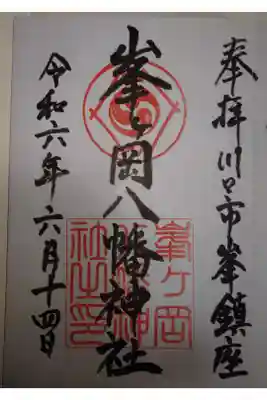 奉拝川口市峯鎮座
峯ヶ岡八幡神社
峯ヶ岡
社之印
令和六年六月十四日